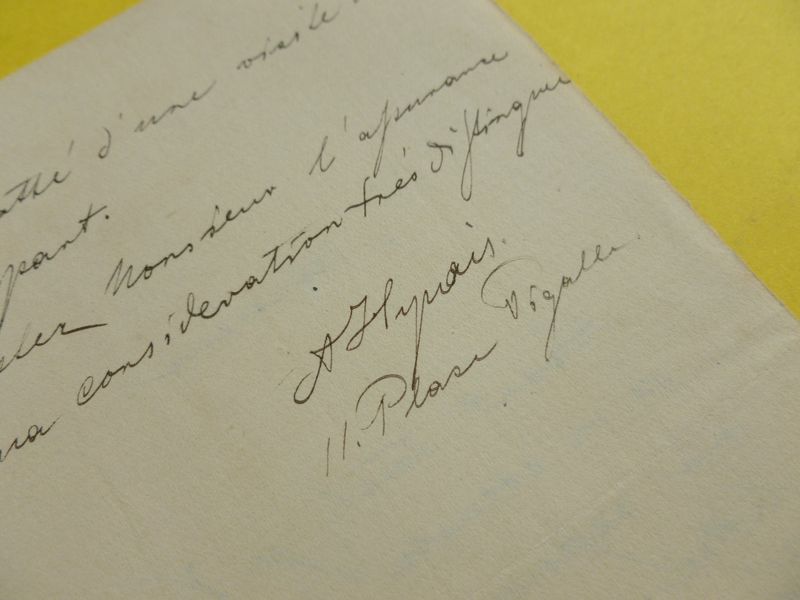 atté d'une visite
part.
Monsieur l'assurance
ma consideration très distinguée
A Hynais.
11. Place Pigalle.